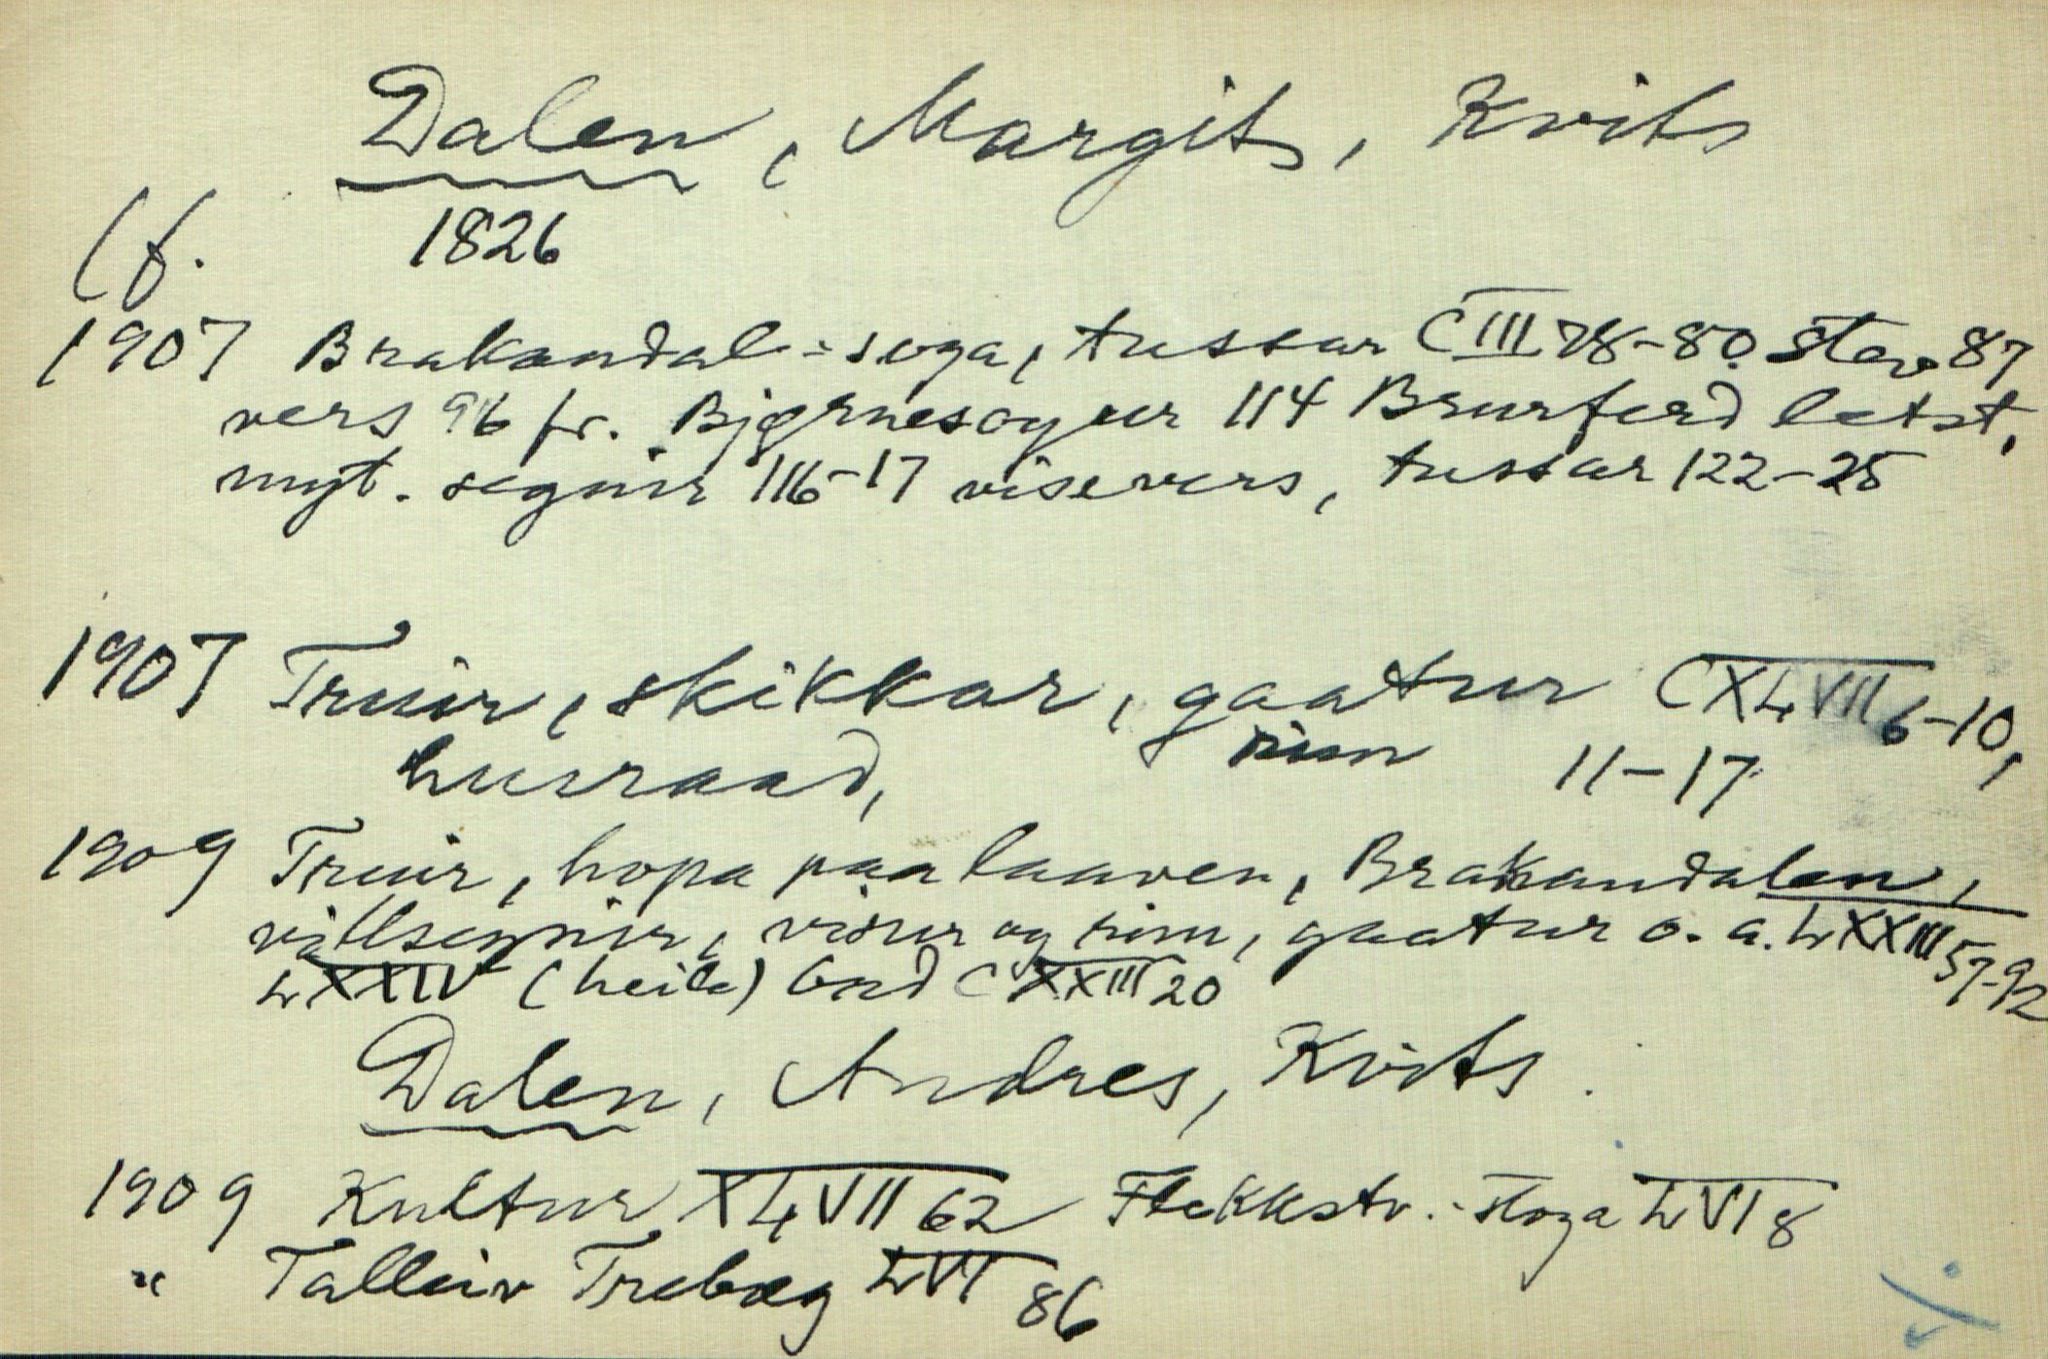 Dalen, Margit, Kvits
(f. 1826
1907 Brakandal-soga, tussar CIII 78-80. Stev 87
vers 96 fr. Bjørnesogur 114 Brurferd letst,
myt. segnir 116-17 visevers, tussar 122-25
1907 Truir, skikkar, gaatur CXLVII 6-10,
husraad, rim 11-17
1909 Truir, hopa paa laaven, Brakandalen,
segnir, visur og rim, gaatur o. a. LXXIII 57-92
LXXIV (heile) CXXIII 20
Dalen, Andres, Kvits.
1909 Kultur XLVII 62 Flekkstv.-stoga LVI 8
" Talleiv Trebæg LVI 86